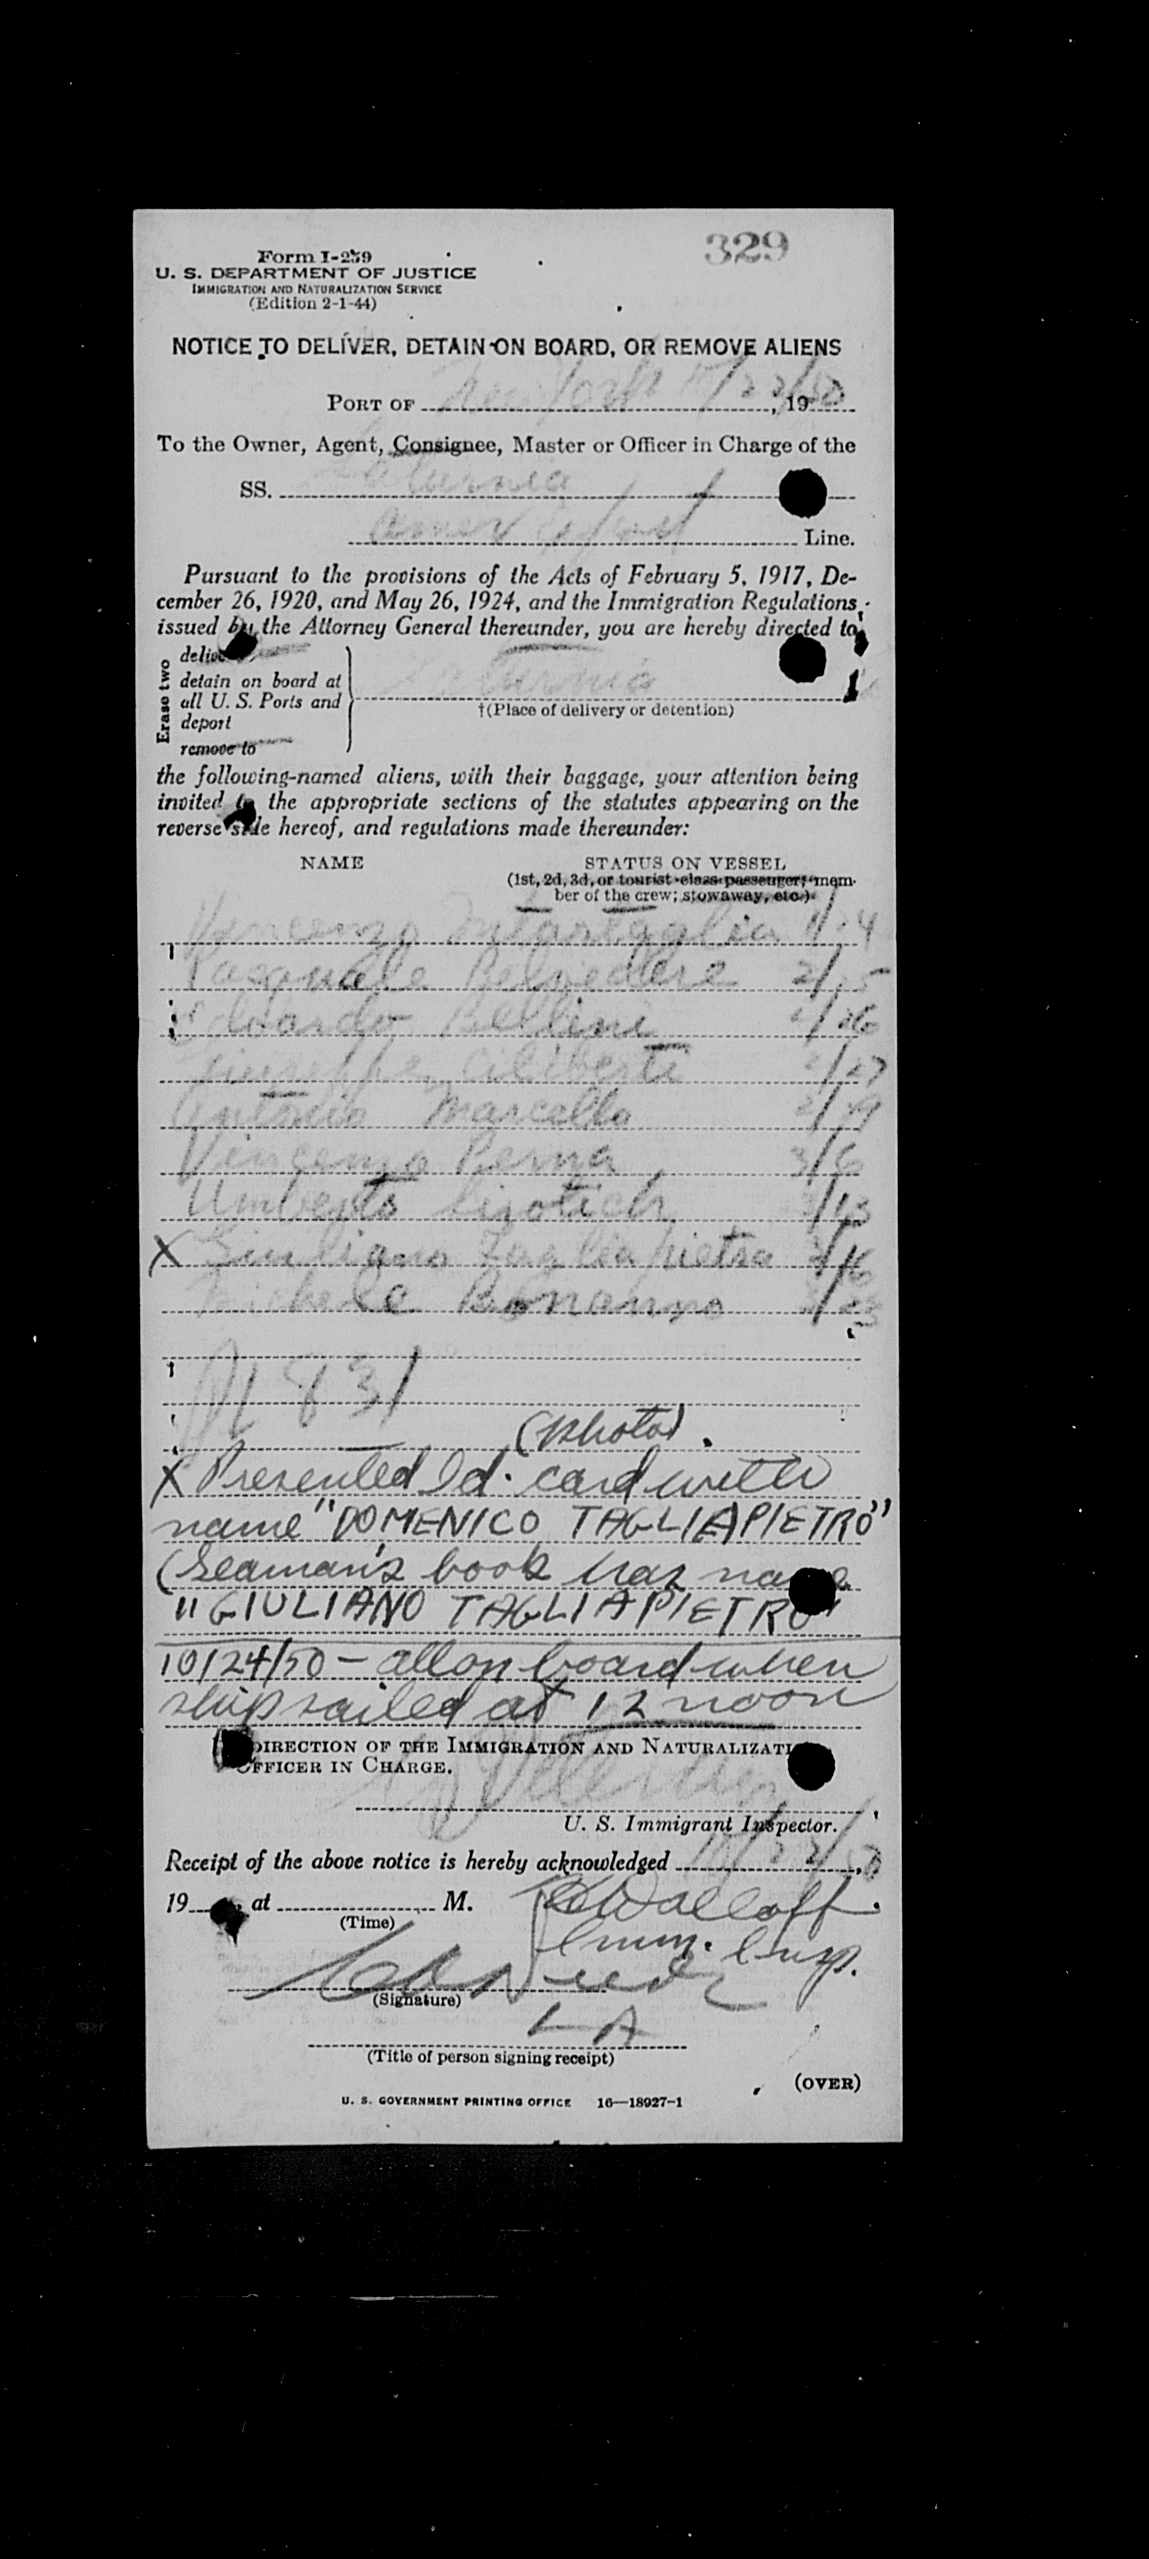 329
Form I-259
U. S. DEPARTMENT OF JUSTICE
IMMIGRATION AND NATURALIZATION SERVICE
(Edition 2-1-44)
NOTICE TO DELIVER, DETAIN ON BOARD, OR REMOVE ALIENS
PORT OF New York 10/23/50, 19
To the Owner, Agent, Consignee, Master or Officer in Charge of the
SS. Saturnia
Amer Export Line.
Pursuant to the provisions of the Acts of February 5, 1917, De-
cember 26, 1920, and May 26, 1924, and the Immigration Regulations
issued by the Attorney General thereunder, you are hereby directed to
Erase two
deliver
detain on board at
all U. S. Ports and
deport
remove to
Saturnia
†(Place of delivery or detention)
the following-named aliens, with their baggage, your attention being
invited to the appropriate sections of the statutes appearing on the
reverse side hereof, and regulations made thereunder:
NAME STATUS ON VESSEL
(1st, 2d, 3d, or tourist class passenger; mem-
ber of the crew; stowaway, etc.)
Vincenzo
Pasquale Belvedere 2/15
Edoardo Bellini 2/26
Giuseppe Ciliberti 2/27
Antonio Marcello 2/29
Vincenzo Perna 3/6
Umberto /13
X Giuliano Tagliapietra /16
Michele Bonanno /23
831
(photo).
X Presented Id. card with
name "DOMENICO TAGLIAPIETRO"
(Seaman's book has name
"GIULIANO TAGLIAPIETRO"
10/24/50 - all on board when
ship sailed at 12 noon
DIRECTION OF THE IMMIGRATION AND NATURALIZATI
OFFICER IN CHARGE.
U. S. Immigrant Inspector.
Receipt of the above notice is hereby acknowledged 10/23/50,
19 , at M.
(Time)
Walloff.
Imm. Insp.
(Signature)
(Title of person signing receipt)
(OVER)
U. S. GOVERNMENT PRINTING OFFICE 16—18927-1